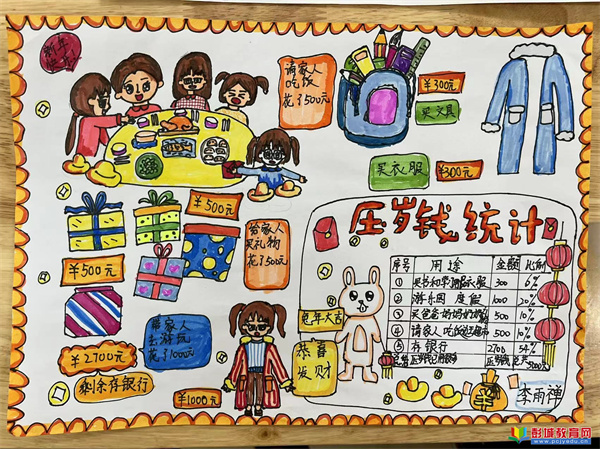 新年
快乐
请家人
吃饭
花了500元
¥300元
买文具
买衣服
¥300元
¥500元
给家人
买礼物
花了500元
¥500元
带家人
去游玩
花了1000元
¥2700元
剩余存银行
¥1000元
兔年大吉
恭喜
发财
压岁钱统计
序号 用途 金额 比例
① 300 6%
② 游乐园 度假 1000 20%
③ 500 10%
④ 请家人吃饭 500 10%
⑤ 存银行 2700 54%
李雨禅
彭城教育网
www.pcjyedu.cn